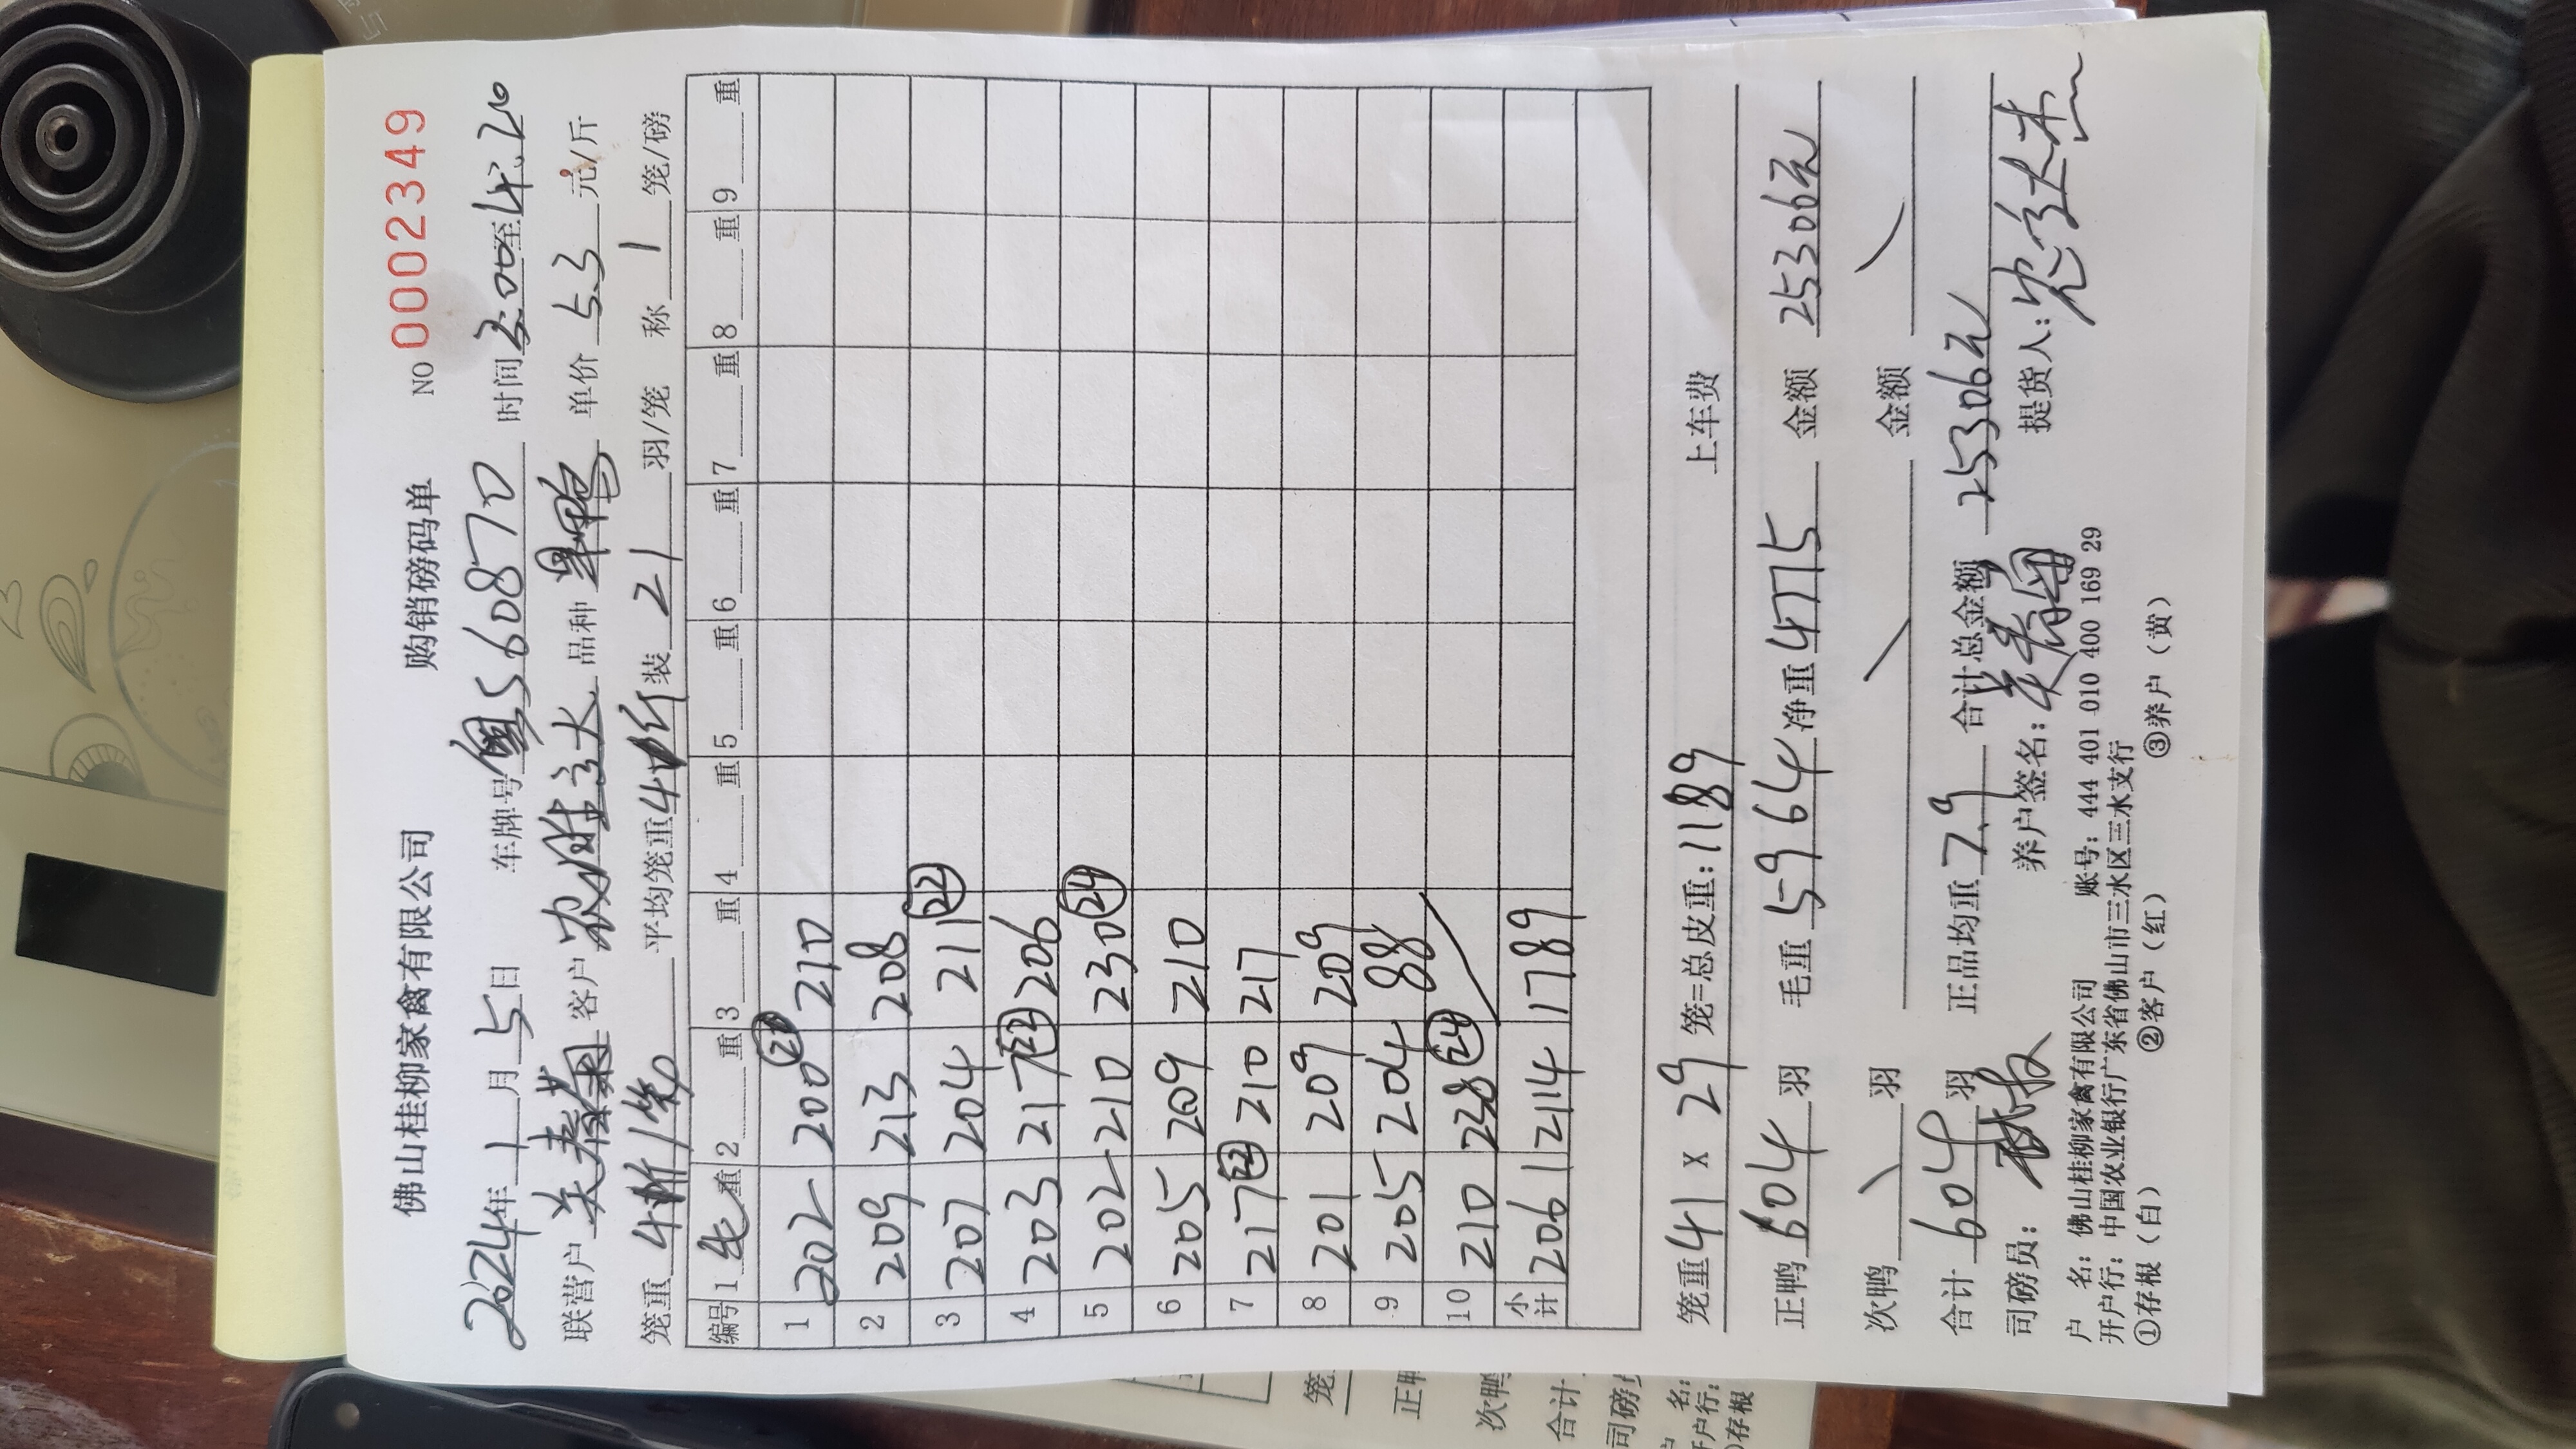 佛山桂柳家禽有限公司 购销磅码单 NO 0002349
2024年1月5日 车牌号粤S60870 时间3:00至4:20
联营户 客户农胜三大 品种 单价5.3元/斤
笼重41斤/笼 平均笼重41斤 装21羽/笼 称1笼/磅
编号 1毛重 2重 3重 4重 5重 6重 7重 8重 9重
1 202 200 ㉑ 210
2 209 213 208
3 207 204 211 ㉒
4 203 217 ㉒ 206
5 202 210 230 ㉔
6 205 209 210
7 217 ㉒ 210 217
8 201 209 209
9 205 204 88
10 210 238 ㉔
小计 2061 2114 1789
笼重41 x 29笼=总皮重:1189 上车费
正鸭604羽 毛重5964 净重4775 金额25306元
次鸭 羽 金额
合计604羽 正品均重7.9 合计总金额25306元
司磅员: 养户签名: 提货人:
户 名:佛山桂柳家禽有限公司 账号:444 401 010 400 169 29
开户行:中国农业银行广东省佛山市三水区三水支行
①存根(白) ②客户(红) ③养户(黄)
笼
正鸭
次鸭
合计
司磅
户 名:
开户行:
①存根